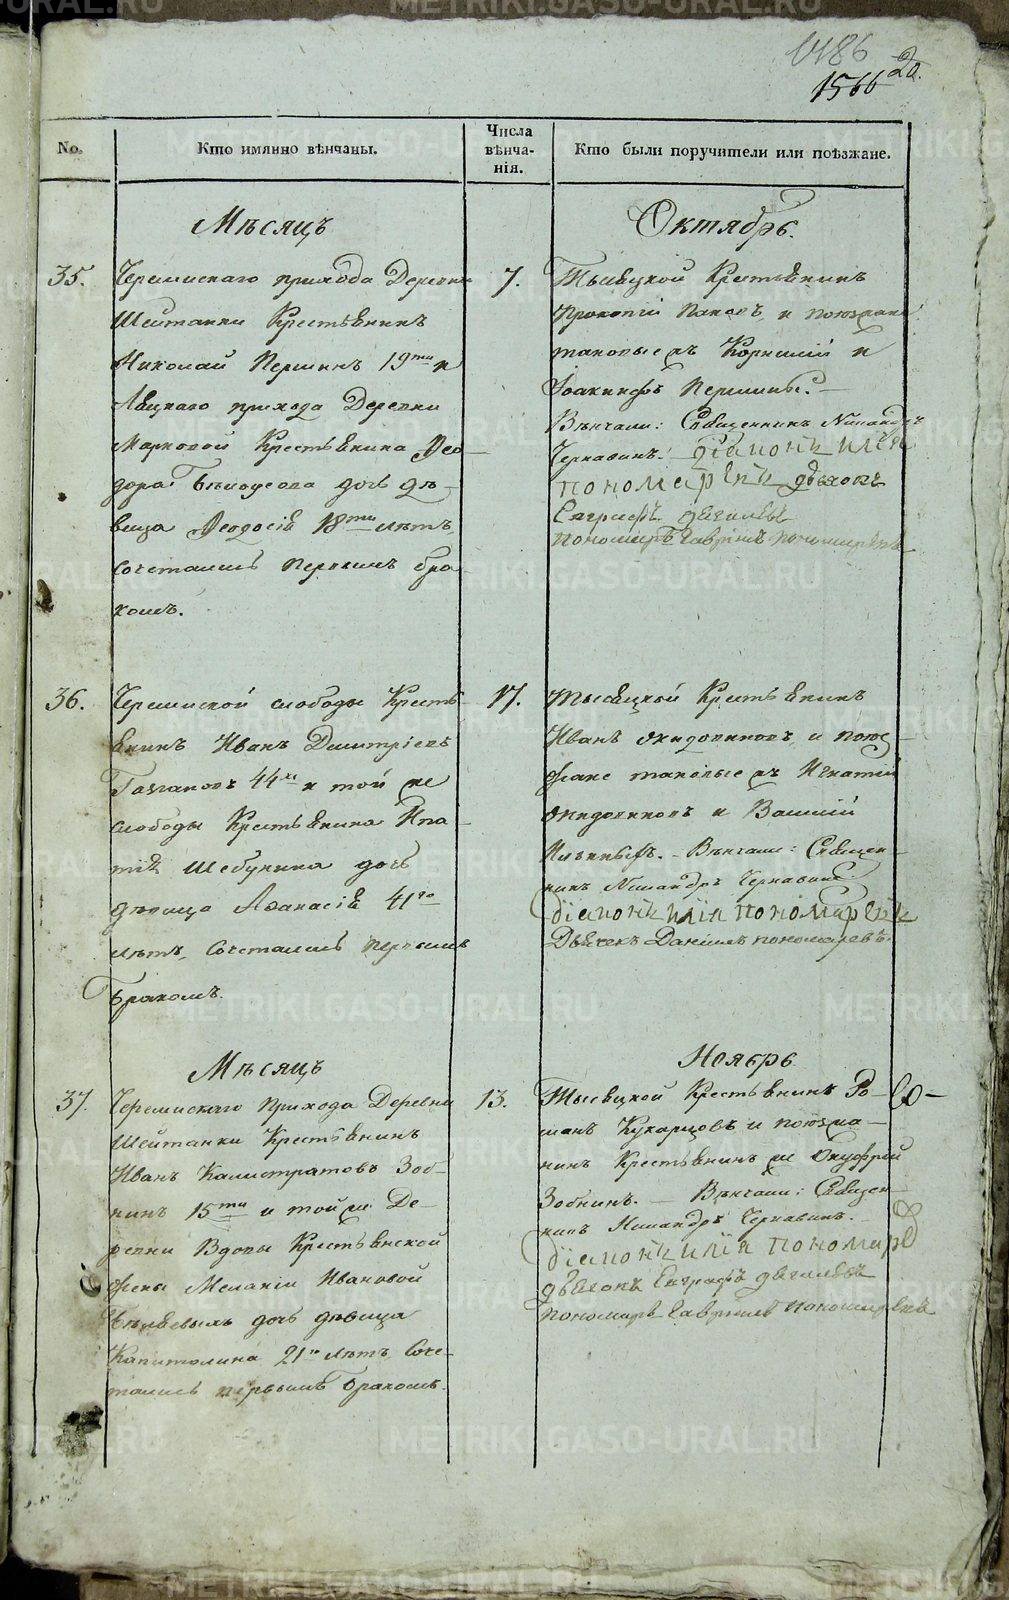 1486
1566 20.
No.
Кто имянно вѣнчаны.
Числа
вѣнча-
нія.
Кто были поручители или поѣзжане.
Мѣсяцъ
Октябрь.
35.
Черемискаго прихода Деревни
Шейтанки Крестьянинъ
Николай Першинъ 19ти и
прихода Деревни
Марковой Крестьянина Ѳео-
дора дочь дѣ-
вица Ѳеодосія 18ти лѣтъ,
сочетались первымъ бра-
комъ.
7.
Тысяцкой Крестьянинъ
Прокопій и поѣзжане
таковые жъ Корнилій и
Іоакинфъ Першины. —
Вѣнчали: Священникъ Никандръ
Чернавинъ. діаконъ илія
пономаревъ дьячокъ
Евграфъ дягилевъ
пономарь Гавріилъ пономаревъ
36.
Черемиской слободы Кресть-
янинъ Иванъ Дмитріевъ
44хъ и той же
слободы Крестьянина Ипа-
тія Шебунина дочь
дѣвица Аѳанасія 41го
лѣтъ, сочетались первымъ
бракомъ.
17.
Тысяцкой Крестьянинъ
Иванъ и поѣз-
жане таковые жъ Игнатій
и Василій
Ильиныхъ. — Вѣнчали: Священ-
никъ Никандръ Чернавинъ
діаконъ илія пономаревъ
Дьячекъ Даніилъ пономаревъ.
Мѣсяцъ
Ноябрь
37.
Черемискаго Прихода Деревни
Шейтанки Крестьянинъ
Иванъ Калистратовъ Зоб-
нинъ 15ти и той же Де-
ревни Вдовы Крестьянской
жены Меланіи Ивановой
дочь дѣвица
Капитолина 21го лѣтъ, Соче-
тались первымъ бракомъ.
13.
Тысяцкой Крестьянинъ Ро-
манъ Кукарцовъ и поѣзжа-
нинъ Крестьянинъ же Онуфрій
Зобнинъ. — Вѣнчали: Священ-
никъ Никандръ Чернавинъ. —
діаконъ илія пономаре
дьячокъ Евграфъ дягилевъ
пономарь Гавріилъ пономаревъ
METRIKI.GASO-URAL.RU